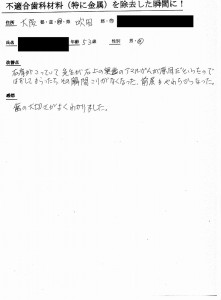 不適合歯科材料（特に金属）を除去した瞬間に！
住所 大阪 都・道・府・県 吹田
氏名 年齢 53歳 性別 男・女
改善点
右肩がこっていて先生が右上の奥歯のアマルガムが原因だというので
はずしてもらったらその瞬間こりがなくなった。前屈もやわらかくなった。
感想
歯の大切さがよくわかりました。